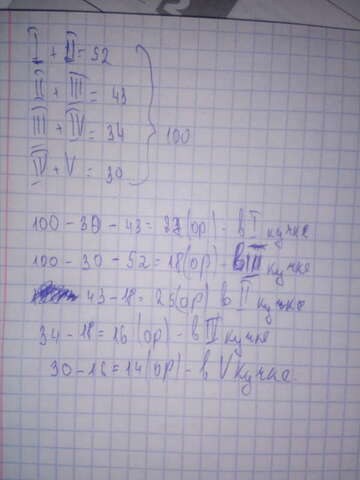 I + II = 52
II + III = 43
III + IV = 34
IV + V = 30
100
100 - 30 - 43 = 27 (ор) - в I кучке
100 - 30 - 52 = 18 (ор) - в III кучке
43 - 18 = 25 (ор) в II кучке
34 - 18 = 16 (ор) - в IV кучке
30 - 16 = 14 (ор) - в V кучке.